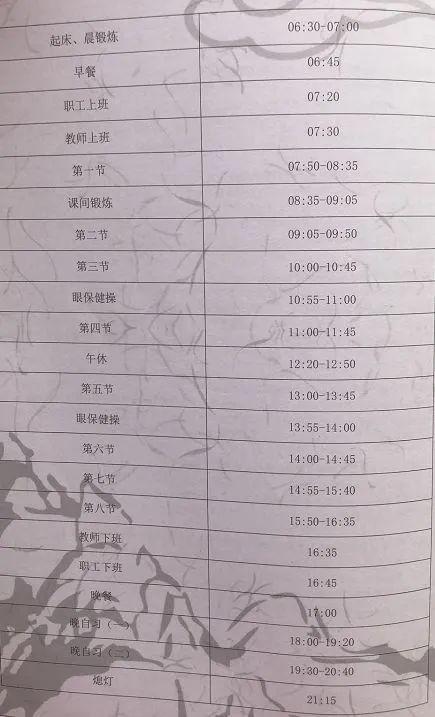 起床、晨锻炼 06:30-07:00
早餐 06:45
职工上班 07:20
教师上班 07:30
第一节 07:50-08:35
课间锻炼 08:35-09:05
第二节 09:05-09:50
第三节 10:00-10:45
眼保健操 10:55-11:00
第四节 11:00-11:45
午休 12:20-12:50
第五节 13:00-13:45
眼保健操 13:55-14:00
第六节 14:00-14:45
第七节 14:55-15:40
第八节 15:50-16:35
教师下班 16:35
职工下班 16:45
晚餐 17:00
晚自习（一） 18:00-19:20
晚自习（二） 19:30-20:40
熄灯 21:15